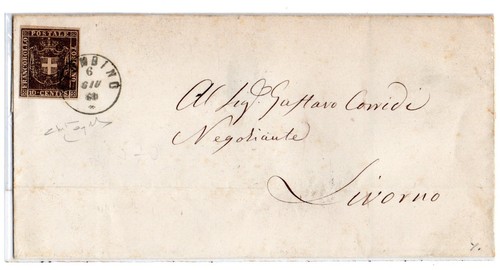 FRANCOBOLLO
POSTALE
TOSCANO
10 CENTES
MBINO
6
GIU
60
Al Sigr. Gustavo Corridi
Negoziante
Livorno